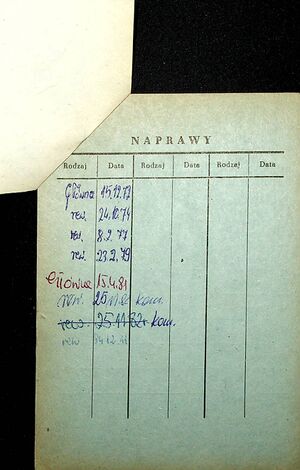 NAPRAWY
Rodzaj Data Rodzaj Data Rodzaj Data
Główna 15.12.72
rew. 24.10.74
rew. 8.2.77
rew. 23.2.79
Główna 15.4.81
rew. 25 kom.
rew. 25.11.82r kom.
rew.